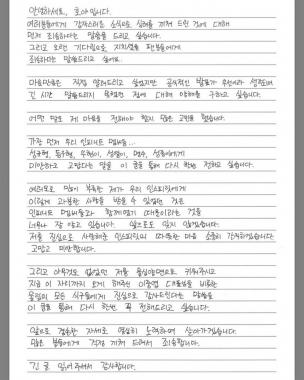 안녕하세요, 호야입니다.
여러분들에게 갑작스러운 소식으로 심려를 끼쳐 드린 것에 대해
먼저 죄송하다는 말씀을 드리고 싶습니다.
그리고 오랜 기다림으로 지치셨을 팬분들에게
죄송하다는 말씀드리고 싶어요.
마음만큼은 직접 알려드리고 싶었지만 공식적인 발표가 우선이라 생각하여
긴 시간 말씀드리지 못했던 점에 대해 양해를 구하고 싶습니다.
어떤 말로 제 마음을 전해야 할지 많은 고민을 했습니다.
가장 먼저 우리 인피니트 멤버들...
성규형, 동우형, 우현이, 성열이, 명수, 성종이에게
미안하고 고맙다는 말을 이 글을 통해 다시 한번 전하고 싶습니다.
여러모로 많이 부족한 제가 우리 인스피릿에게
이렇게 과분한 사랑을 받을 수 있었던 것은
인피니트 멤버들과 함께였기 때문이라는 것을
너무나 잘 알고 있습니다. 앞으로도 잊지 않겠습니다.
저를 진심으로 사랑해준 인스피릿의 따뜻한 마음 소중히 간직하겠습니다.
고맙고 미안합니다.
그리고 아무것도 없었던 저를 음악인으로 키워주시고
지금 이 자리까지 오게 해주신 이중엽 대표님을 비롯한
울림의 모든 식구들에게 진심으로 감사드린다는 말씀을
이 글을 통해 다시 한번 꼭 전해드리고 싶습니다.
앞으로 겸손한 자세로 열심히 노력하며 살아가겠습니다.
많은 분들에게 걱정 끼쳐 드려서 죄송합니다.
긴 글 읽어주셔서 감사합니다.